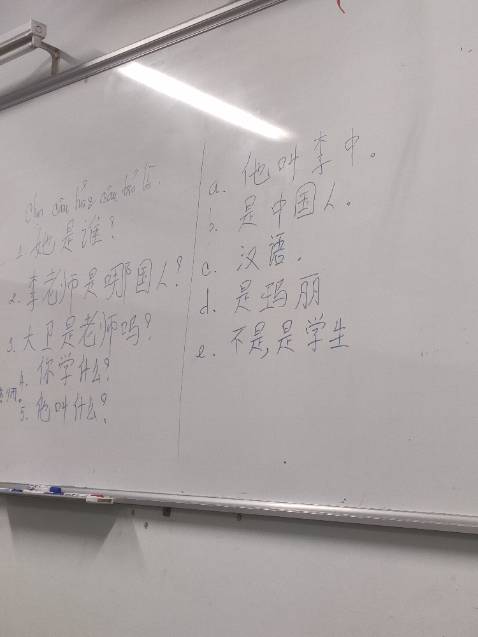 1. 她是谁?
2. 李老师是哪国人?
3. 大卫是老师吗?
4. 你学什么?
师。
5. 他叫什么?
a. 他叫李中。
b. 是中国人。
c. 汉语.
d. 是玛丽
e. 不是,是学生